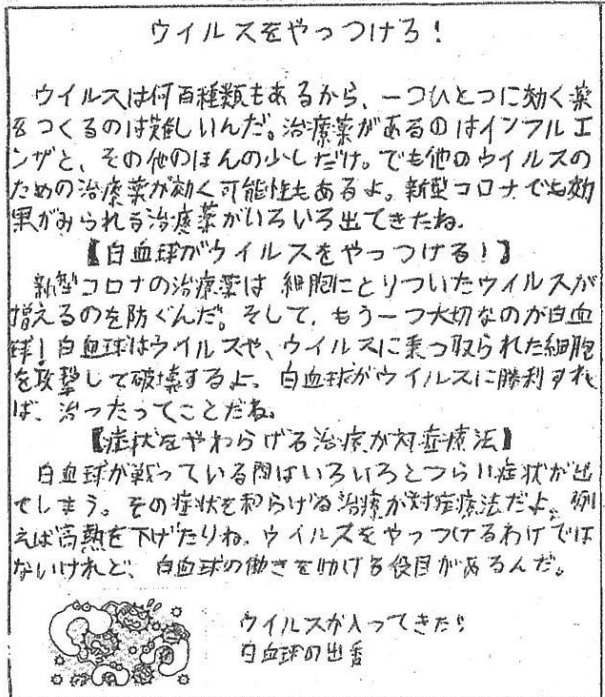 ウイルスをやっつけろ!
ウイルスは何百種類もあるから、一つひとつに効く薬
をつくるのは難しいんだ。治療薬があるのはインフルエ
ンザと、その他のほんの少しだけ。でも他のウイルスの
ための治療薬が効く可能性もあるよ。新型コロナでも効
果がみられる治療薬がいろいろ出てきたね。
【白血球がウイルスをやっつける!】
新型コロナの治療薬は細胞にとりついたウイルスが
増えるのを防ぐんだ。そして、もう一つ大切なのが白血
球!白血球はウイルスや、ウイルスに乗っ取られた細胞
を攻撃して破壊するよ。白血球がウイルスに勝利すれ
ば、治ったってことだね。
【症状をやわらげる治療が対症療法】
白血球が戦っている間はいろいろとつらい症状が出
てしまう。その症状を和らげる治療が対症療法だよ。例
えば高熱を下げたりね。ウイルスをやっつけるわけでは
ないけれど、白血球の働きを助ける役目があるんだ。
ウイルスが入ってきた!!
白血球の出番